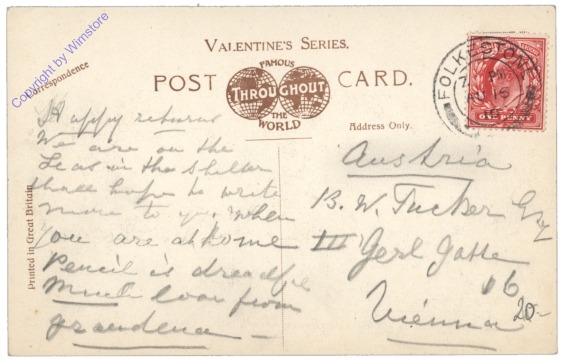 Copyright by Wimstore
VALENTINE'S SERIES.
POST CARD.
FAMOUS
THROUGHOUT
THE
WORLD
Correspondence
Address Only.
Printed in Great Britain
FOLKESTONE
ONE PENNY
Happy returns
We are on the
Leas in the shelter
shall hope to write
more to you when
you are at home
Pencil is
Much love from
Austria
B. W. Tucker Esq
III Gasse
16
Vienna
20-